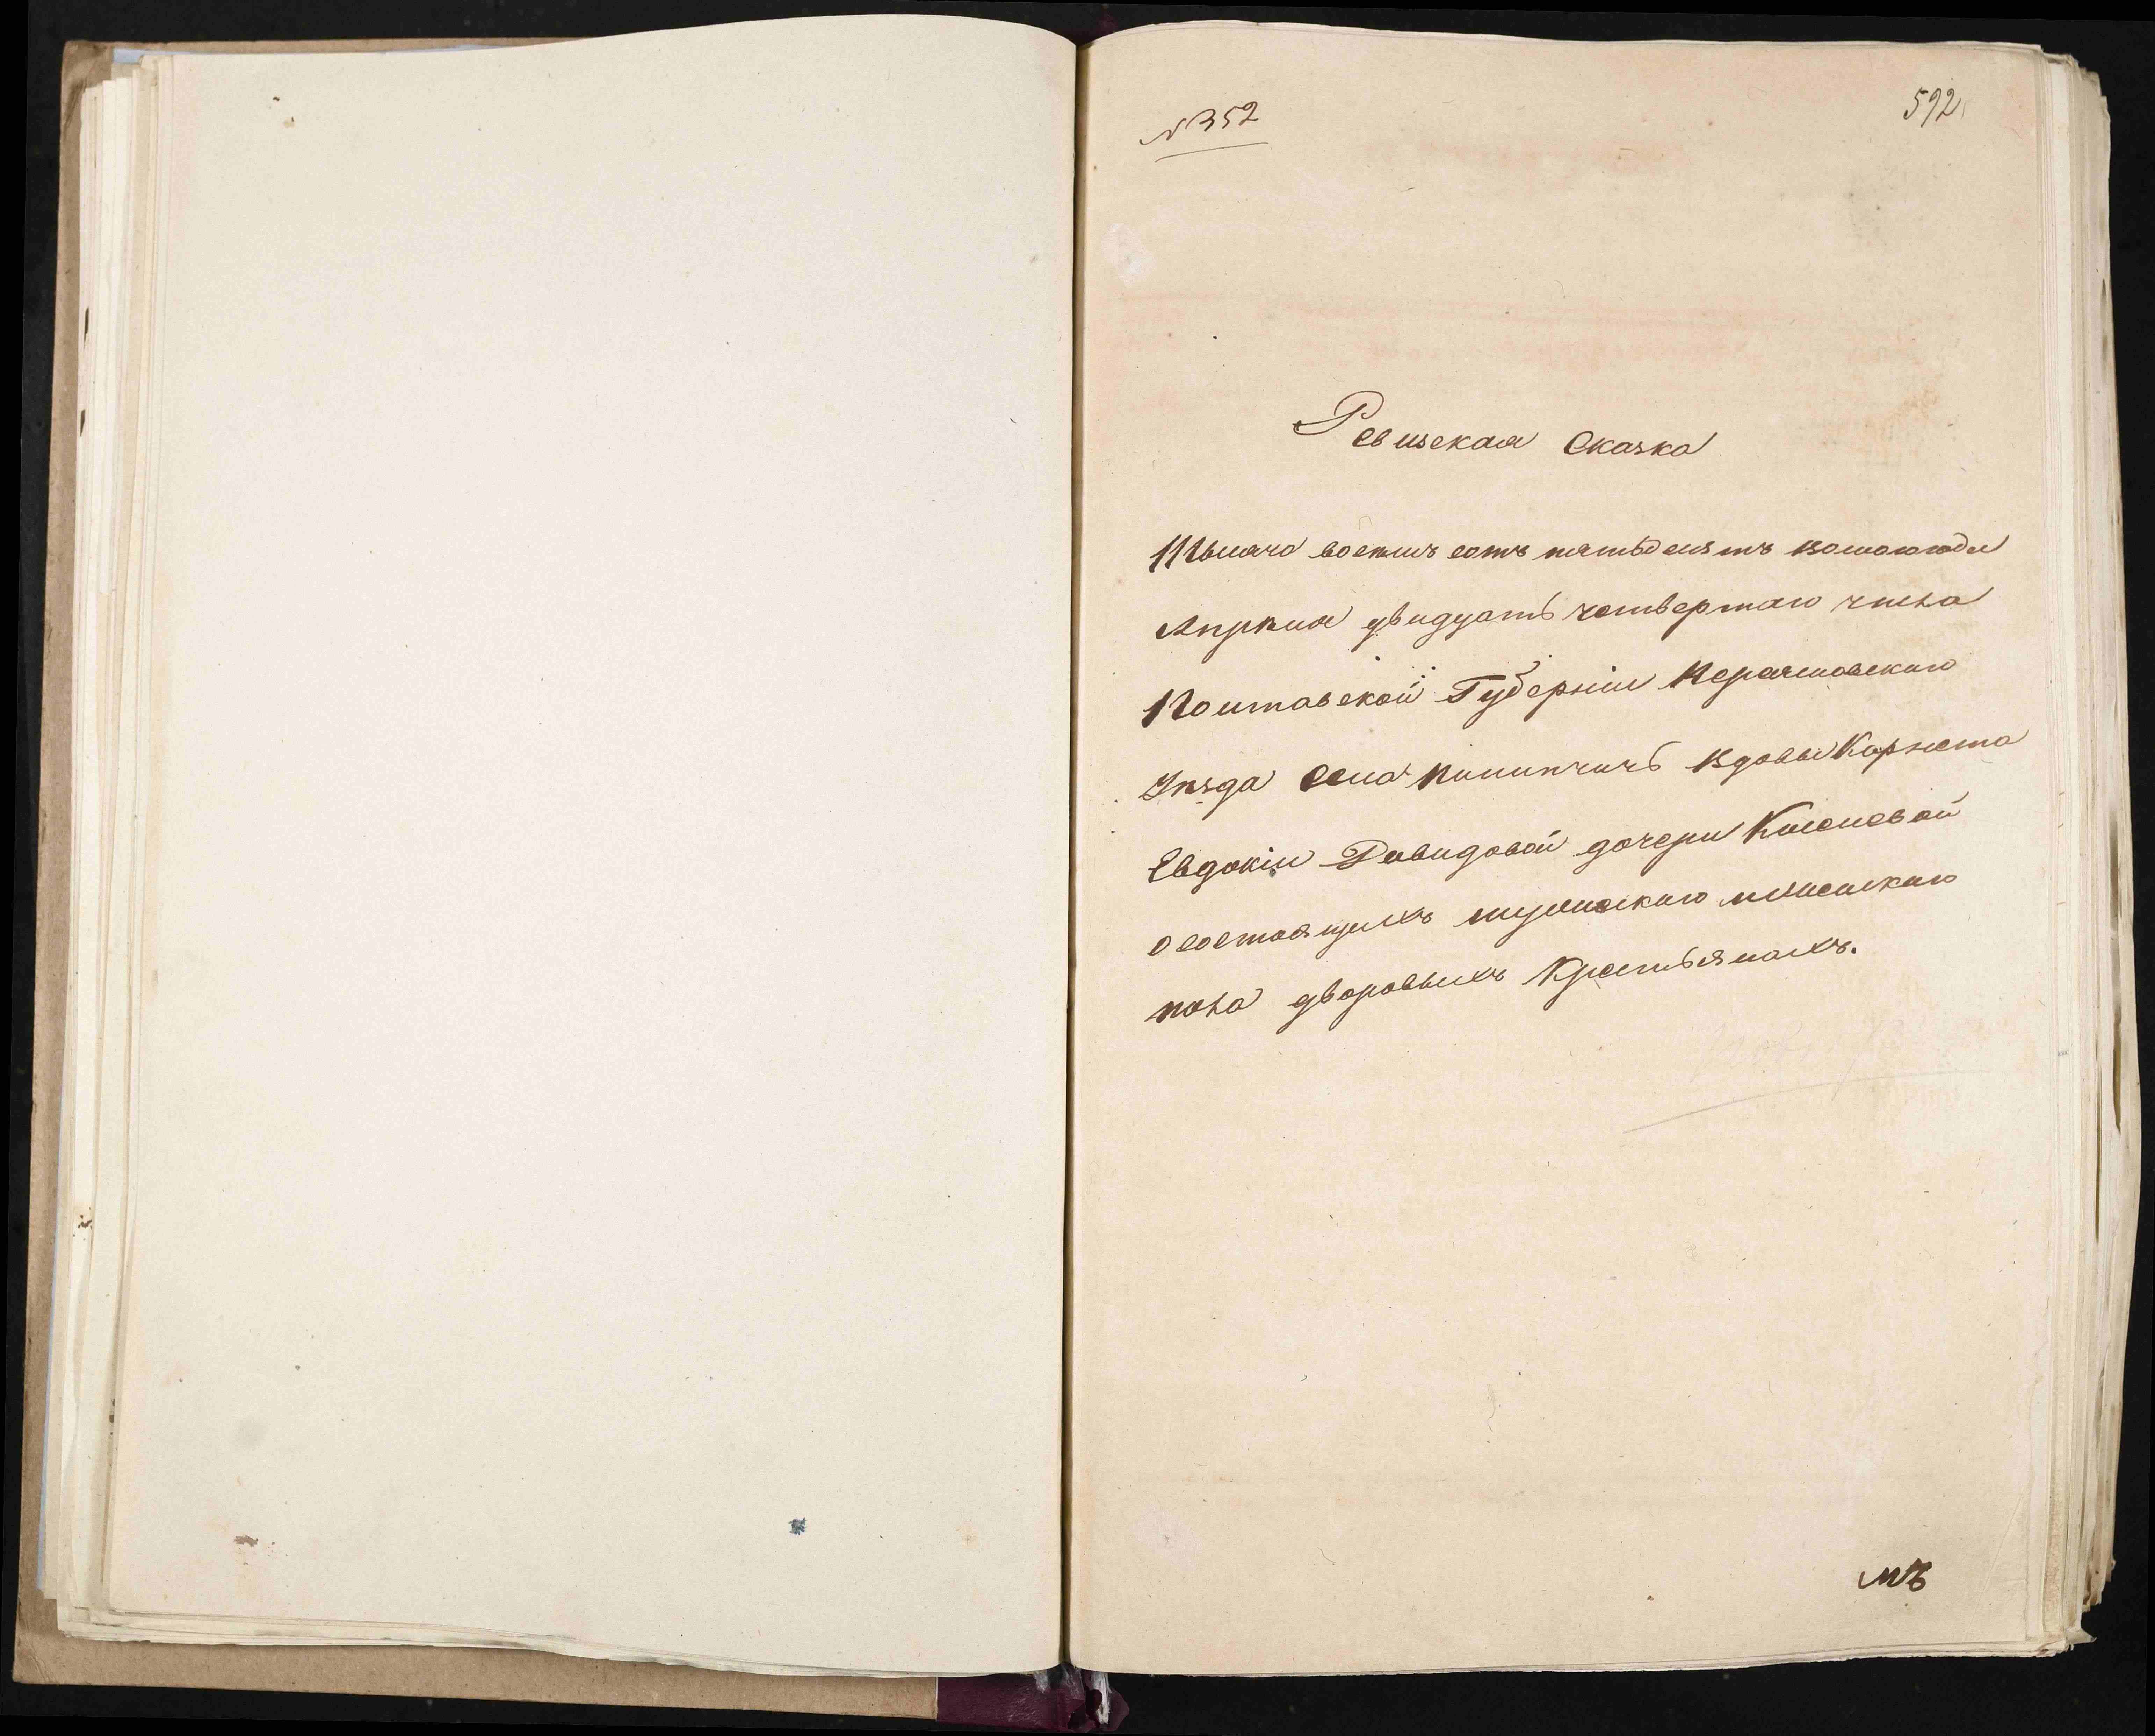 № 352
592
Ревизская Сказка
Тысяча восемь сотъ пятьдесятъ восьмаго года
Апреля двадцать четвертаго числа
Полтавской Губерніи Переяславскаго
Уезда села вдовы Корнета
Евдокіи Давидовой дочери
о состоящихъ мужескаго и женскаго
пола дворовыхъ Крестьянахъ.